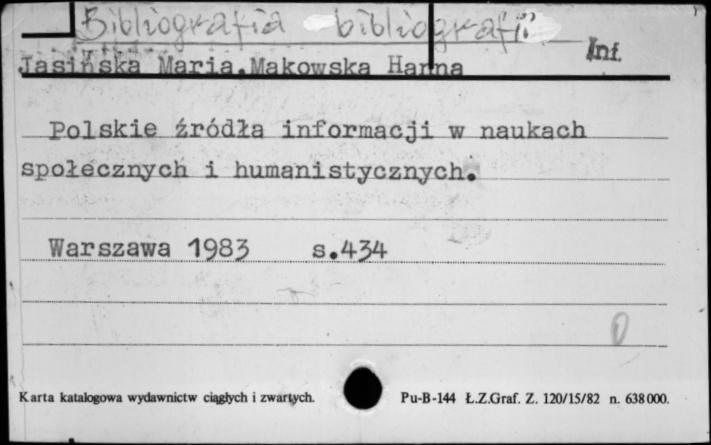 Bibliografia bibliografii
Inf.
Jasińska Maria.Makowska Hanna
Polskie źródła informacji w naukach
społecznych i humanistycznych.
Warszawa 1983 s.434
0
Karta katalogowa wydawnictw ciągłych i zwartych. Pu-B-144 Ł.Z.Graf. Z. 120/15/82 n. 638000.